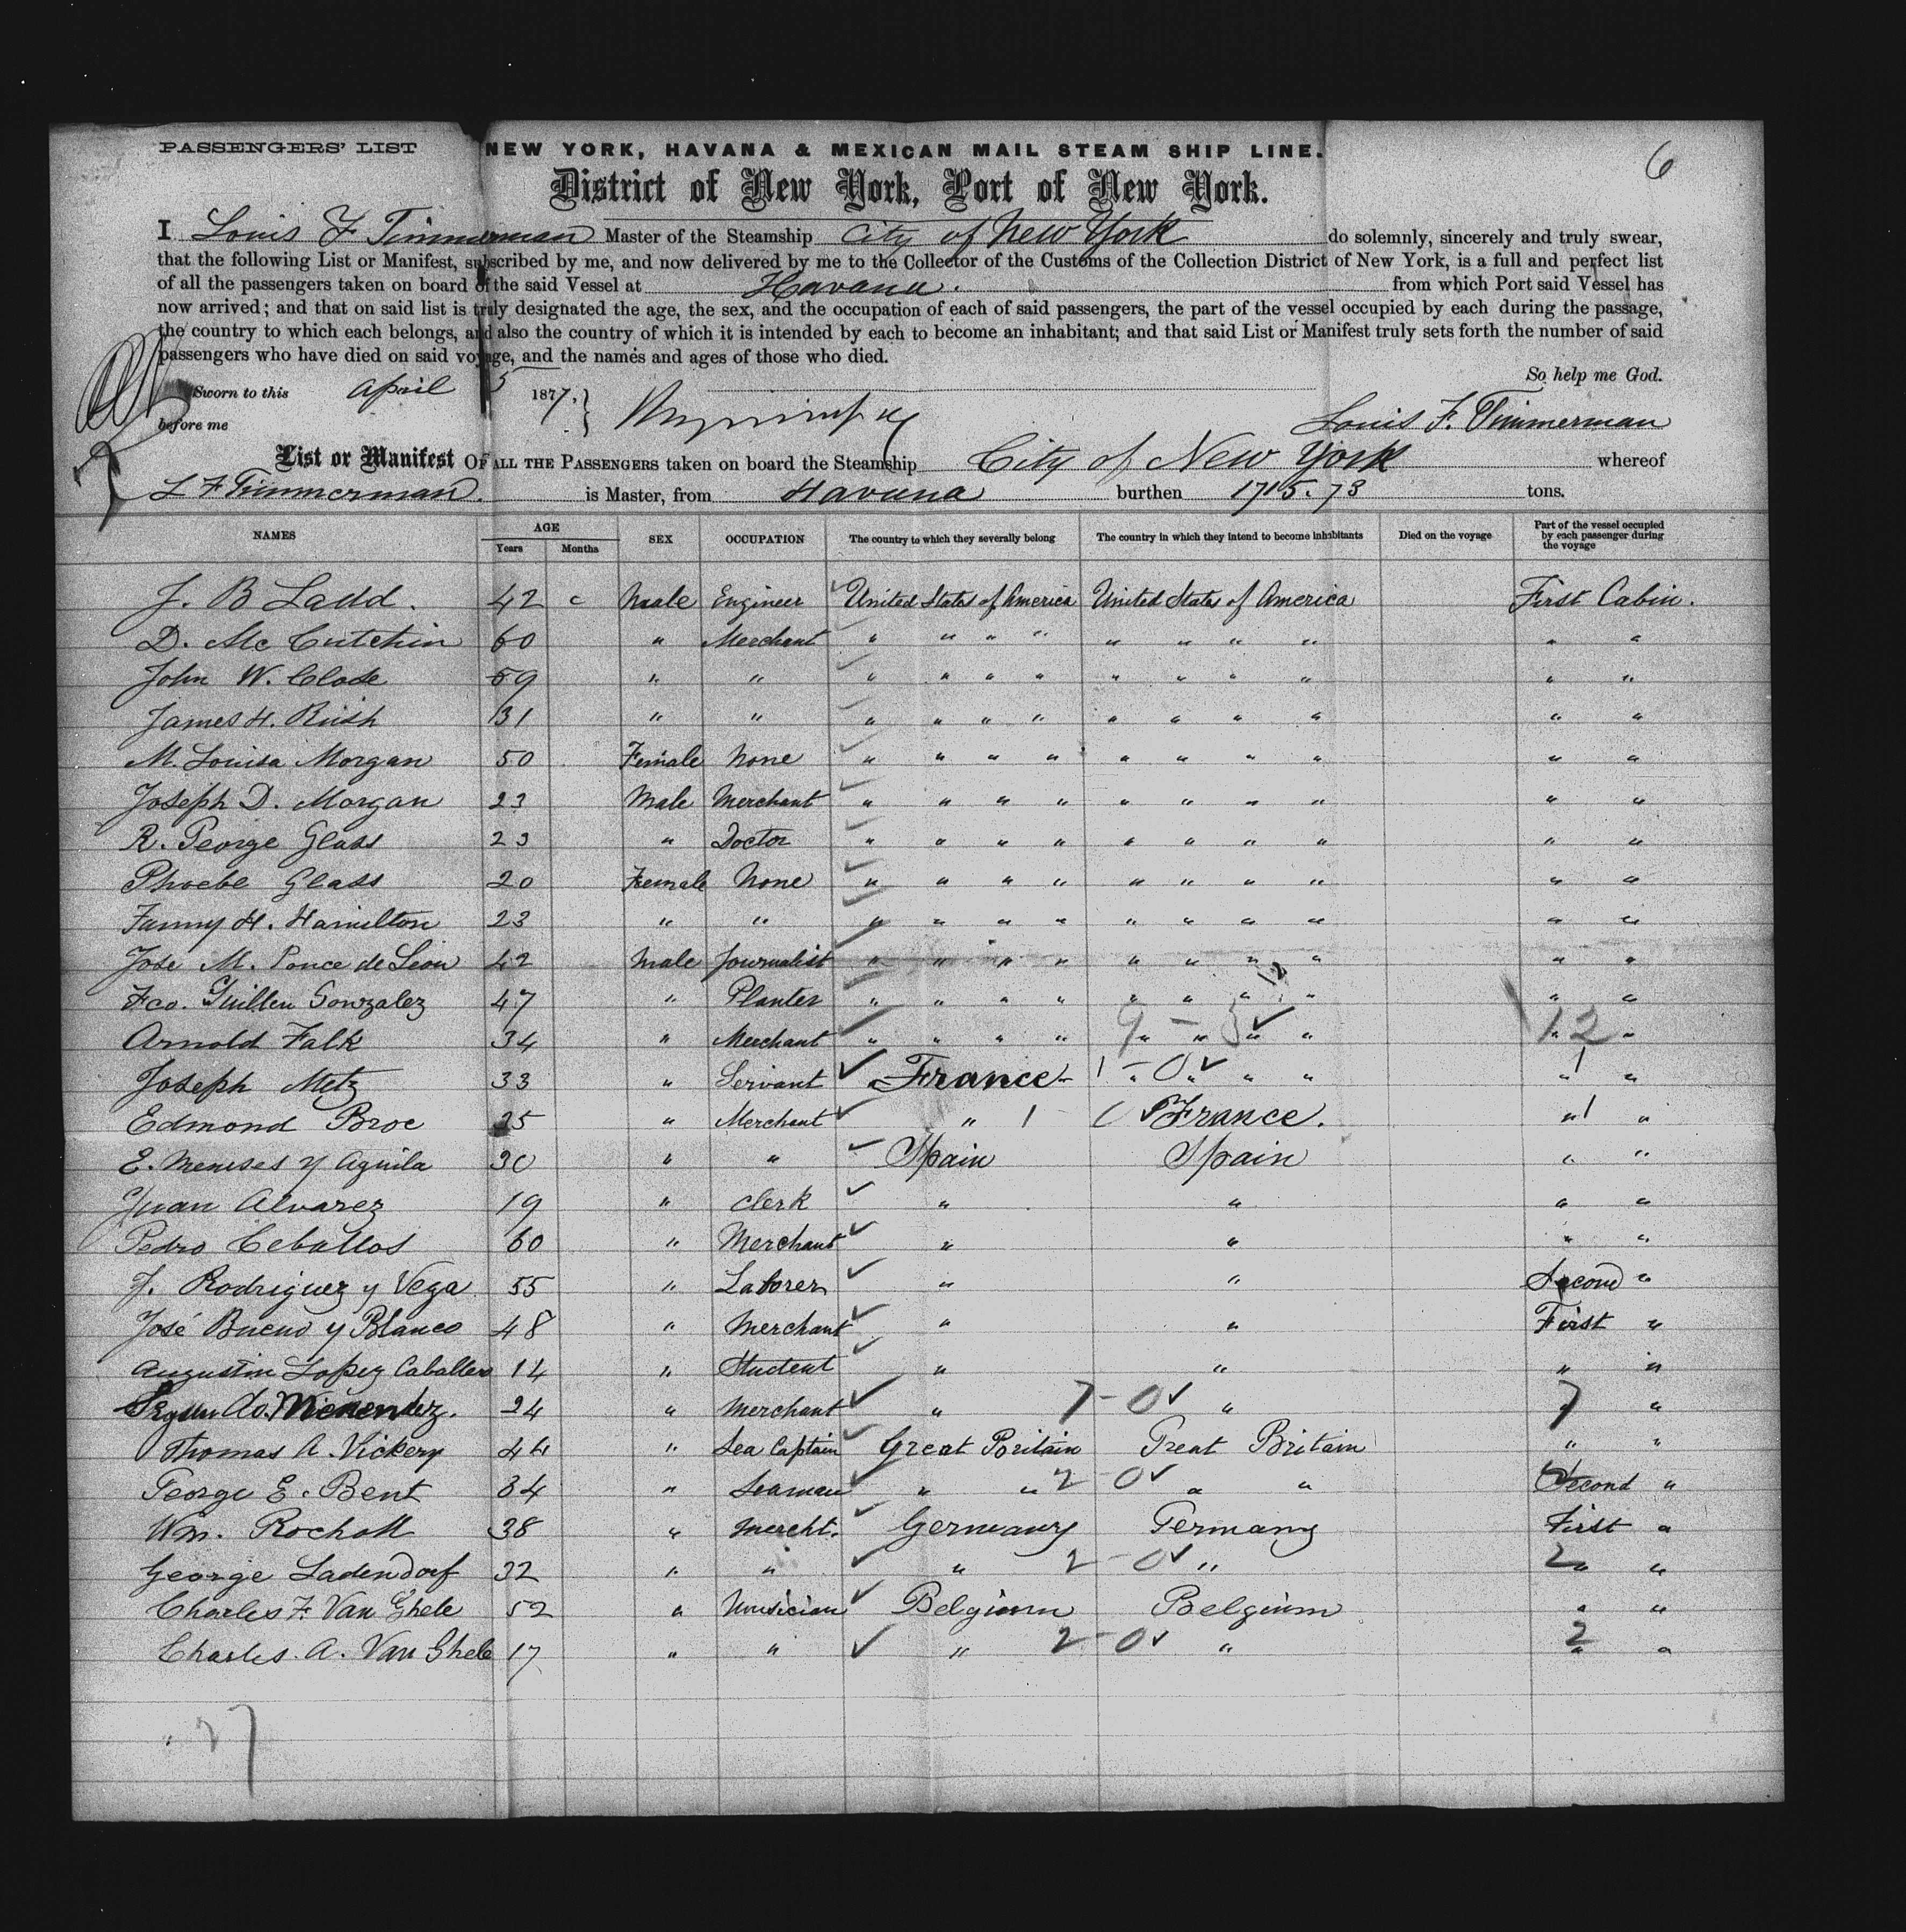 PASSENGERS' LIST NEW YORK, HAVANA & MEXICAN MAIL STEAM SHIP LINE. 6
District of New York, Port of New York.
I Louis F Timmerman Master of the Steamship City of New York do solemnly, sincerely and truly swear,
that the following List or Manifest, subscribed by me, and now delivered by me to the Collector of the Customs of the Collection District of New York, is a full and perfect list
of all the passengers taken on board of the said Vessel at Havana. from which Port said Vessel has
now arrived; and that on said list is truly designated the age, the sex, and the occupation of each of said passengers, the part of the vessel occupied by each during the passage,
the country to which each belongs, and also the country of which it is intended by each to become an inhabitant; and that said List or Manifest truly sets forth the number of said
passengers who have died on said voyage, and the names and ages of those who died.
So help me God.
Sworn to this April 5 1877,
before me Louis F. Timmerman
List or Manifest OF ALL THE PASSENGERS taken on board the Steamship City of New York whereof
L F Timmerman. is Master, from Havana burthen 1715.73 tons.
NAMES AGE Years Months SEX OCCUPATION The country to which they severally belong The country in which they intend to become inhabitants Died on the voyage Part of the vessel occupied by each passenger during the voyage
J. B Ladd. 42 Male Engineer United States of America United States of America First Cabin.
D. Mc Cutchin 60 " Merchant " " " " " " " " " "
John W. Clode 59 " " " " " " " " " " " "
James H. Rush 31 " " " " " " " " " " " "
M. Louisa Morgan 50 Female None " " " " " " " " " "
Joseph D. Morgan 23 Male Merchant " " " " " " " " " "
R. George Glass 23 " Doctor " " " " " " " " " "
Phoebe Glass 20 Female None " " " " " " " " " "
Fanny H. Hamilton 23 " " " " " " " " " " " "
Jose M. Ponce de Leon 42 Male Journalist " " " " " " " " " "
Fco. Guillen Gonzalez 47 " Planter " " " " " " " " " "
Arnold Falk 34 " Merchant " " " " 9 - 3 " " " " 12 " "
Joseph Metz 33 " Servant France 1 - 0 " " " " 1 " "
Edmond Broc 35 " Merchant " 1 0 France. 1 " "
E. Meneses y Aguila 30 " " Spain Spain " "
Juan Alvarez 19 " Clerk " " " "
Pedro Ceballos 60 " Merchant " " " "
J. Rodriguez y Vega 55 " Laborer " " Second "
José Bueno y Blanco 48 " Merchant " " First "
Augustin Lopez Caballero 14 " Student " " " "
Menendez. 24 " Merchant " 7 - 0 " 7 "
Thomas A. Vickery 44 " Sea Captain Great Britain Great Britain " "
George E. Bent 34 " Seaman " " 2 - 0 " " Second "
Wm. Rocholl 38 " Mercht. Germany Germany First "
George Ladendorf 32 " " " 2 - 0 " 2 " "
Charles F. Van Ghele 52 " Musician Belgium Belgium " "
Charles. A. Van Ghele 17 " " " 2 - 0 " 2 " "
27